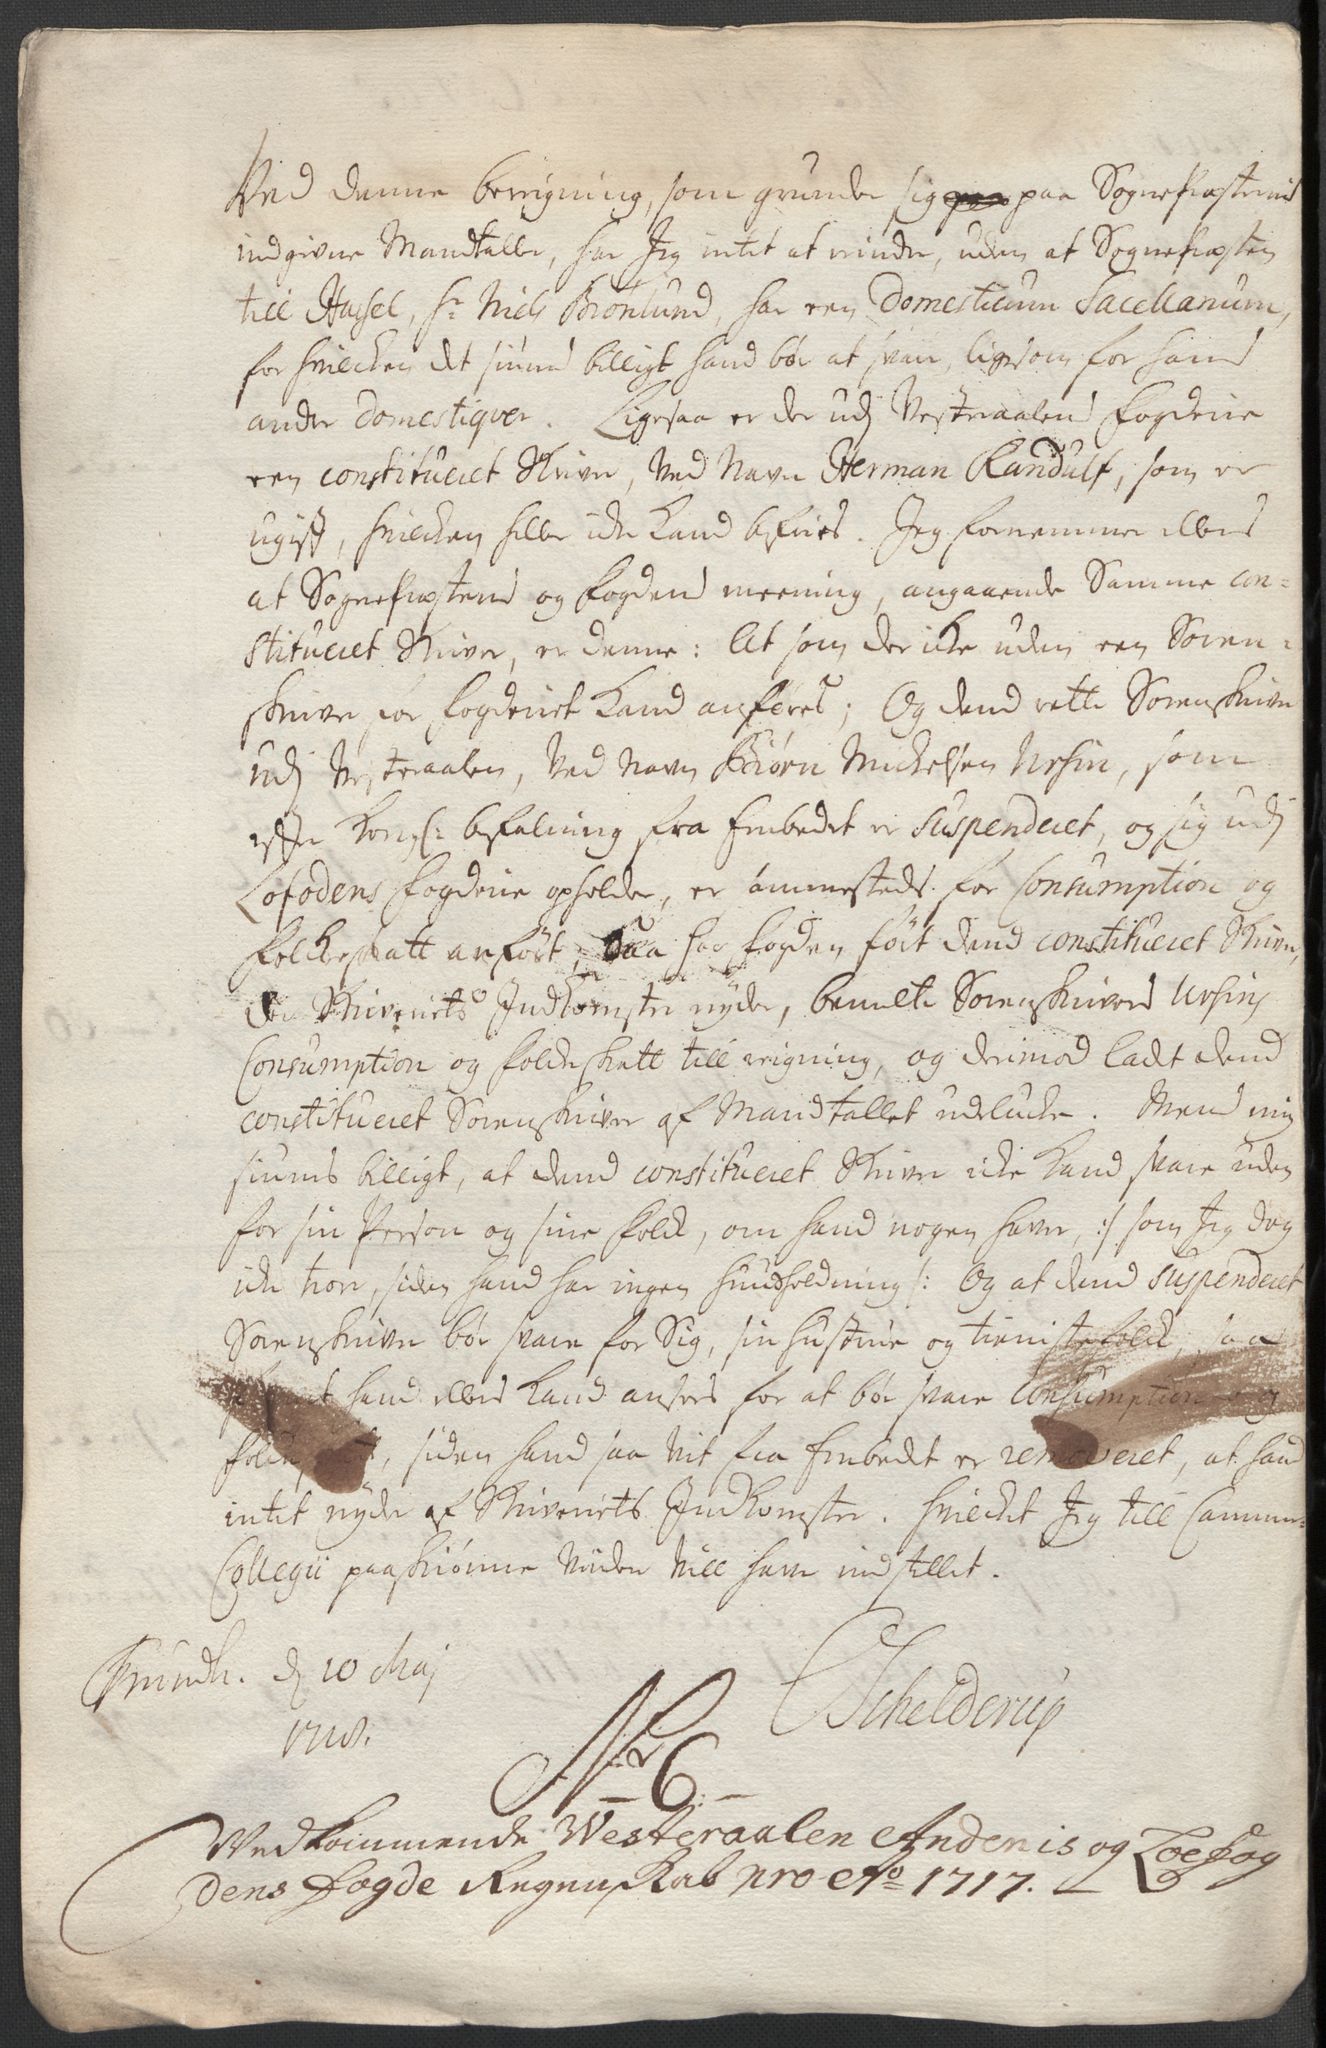 Ved denne beregning, som grunder sig paa Sognepræstens
indgivne Mandtaller, har Jeg intet at erindre, uden at Sognepræsten
till Hassel, Hr. Niels Brønlund, har een Domesticum Sacellanum,
for hvilcken det siunes billigt hand bør at svare, ligesom for hans
andre Domestiqver. Ligesaa er der udj Vesteraalens fogderie
een constitueret Skriver, ved Navn Herman Randulf, som er
ugift, hvilcken heller icke kand befries. Jeg fornemmer ellers
at Sognepræstens og fogdens meening, angaaende Samme con-
stitueret Skriver, er denne: At som der icke uden een Soren-
skriver for fogderiet kand anføres; Og dend rette Sorenskriver
udj Vesteraalen, ved Navn Biørn Mickelsen Ursin, som
efter Kongl: befalning fra Embedet er suspenderet, og sig udj
Lofodens fogderie opholder, er sammesteds for Consumption og
folckeskatt anført, Saa har fogden ført dend constitueret Skriver,
der Skriveriets Indkomster nyder, bemelte Sorenskrivers Ursins
Consumption og folckeskatt till reigning, og derimod ladt dend
constitueret Sorenskriver af Mandtallet udelucke. Mend mig
siunes billigt, at dend constitueret Skriver icke kand svare uden
for sin Person og sine folck, om hand nogen haver, :/ som Jeg dog
icke troer, siden hand har ingen huusholdning /: Og at dend suspenderet
Sorenskriver bør svare for Sig, sin hustrue og tienistefolck, saa
hand ellers kand ansees for at bør svare Consumption og
siden hand saa vit fra Embedet er removeret, at hand
intet nyder af Skriveriets Indkomster. Hvilcket Jeg till Cammer-
Collegii paaskiønne videre vill have indstillet.
Trundh. d 10 Maj
1718.
Schelderup
No 6
Vedkommende Westeraalen Andenis og Loefog
dens Fogde Regenskab pro Ao 1717.